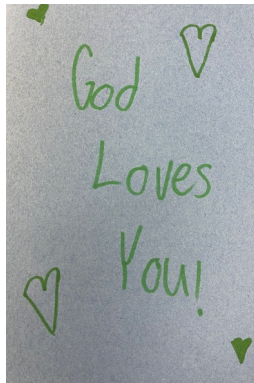 God
Loves
You!